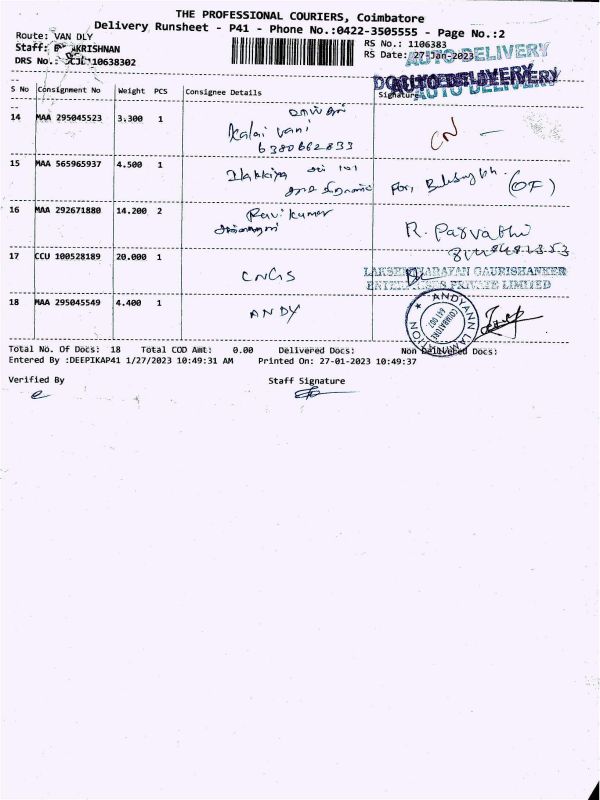 THE PROFESSIONAL COURIERS, Coimbatore
Delivery Runsheet - P41 - Phone No.:0422-3505555 - Page No.:2
Route: VAN DLY
RS No.: 1106383
AUTO DELIVERY
Staff: KRISHNAN
RS Date: 27-Jan-2023
DRS No.: 110638302
AUTO DELIVERY
AUTO DELIVERY
S No Consignment No Weight PCS Consignee Details Signature
14 MAA 295045523 3.300 1
Kalai vani
6380662833
CN
15 MAA 565965937 4.500 1 Ilakkiya
For,
(OF)
16 MAA 292671880 14.200 2 Ravi kumar
R. Parvathi
17 CCU 100528189 20.000 1 CNGS
LAKSHMINARAYAN GAURISHANKER
ENTERPRISES PRIVATE LIMITED
18 MAA 295045549 4.400 1 ANDY
ANDYANN LAMINATION
COIMBATORE
641 007
Total No. Of Docs: 18 Total COD Amt: 0.00 Delivered Docs: Non Delivered Docs:
Entered By :DEEPIKAP41 1/27/2023 10:49:31 AM Printed On: 27-01-2023 10:49:37
Verified By Staff Signature